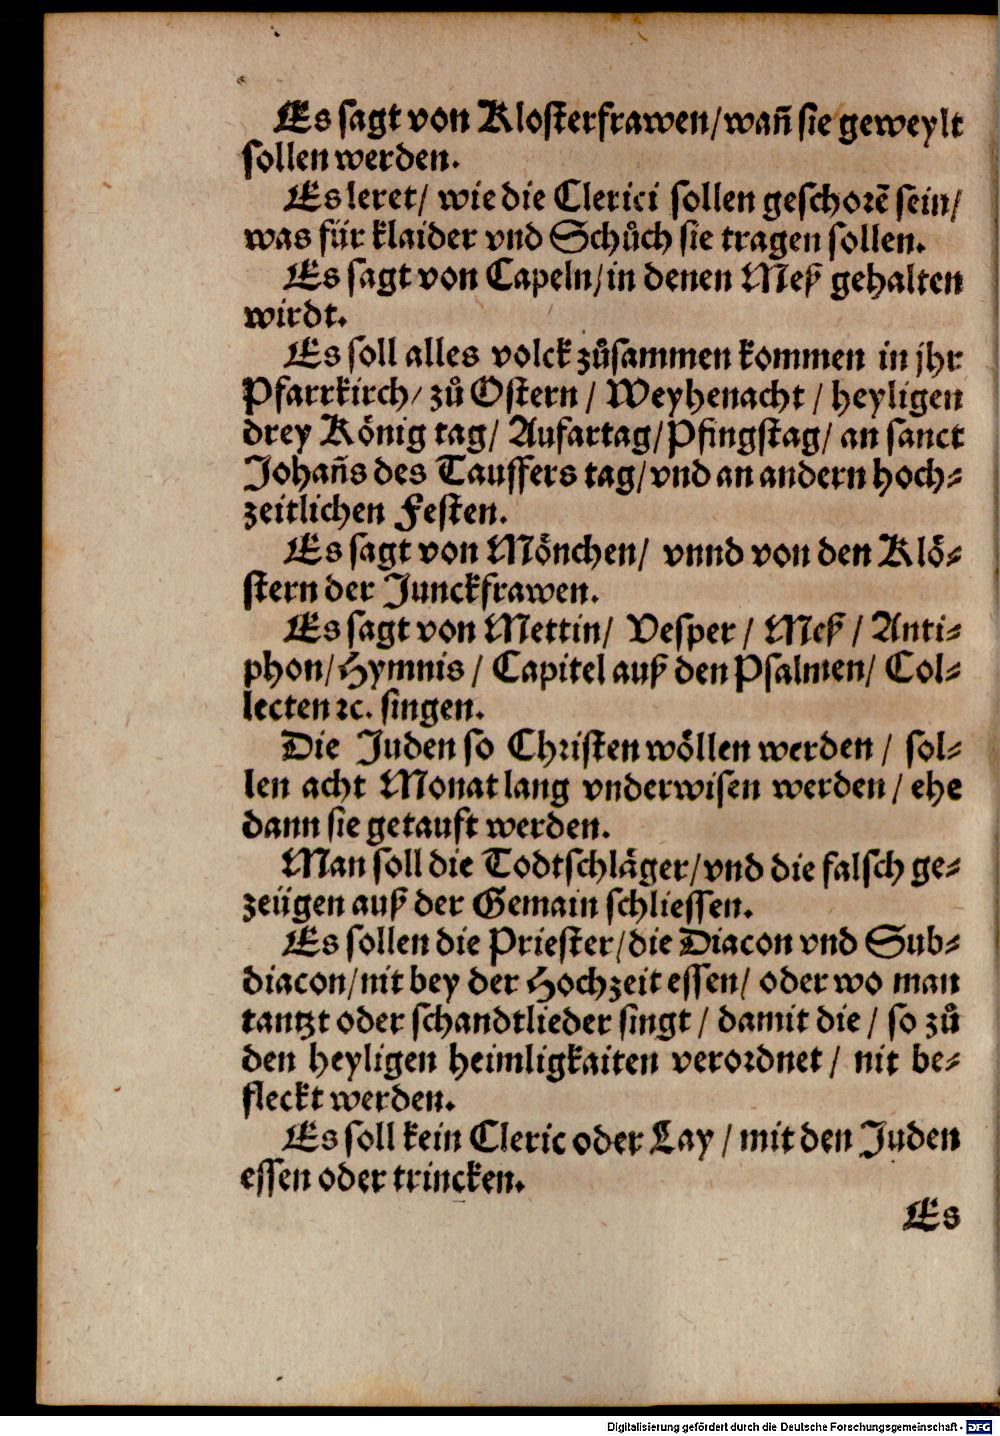 Es sagt von Klosterfrawen/wañ sie geweylt
sollen werden.
Es leret/ wie die Clerici sollen geschorẽ sein/
was für klaider vnd Schůch sie tragen sollen.
Es sagt von Capeln/in denen Meß gehalten
wirdt.
Es soll alles volck zůsammen kommen in jhr
Pfarrkirch/ zů Ostern / Weyhenacht / heyligen
drey König tag/ Aufartag/Pfingstag/ an sanct
Johañs des Tauffers tag/vnd an andern hoch-
zeitlichen Festen.
Es sagt von Mönchen/ vnnd von den Klö-
stern der Junckfrawen.
Es sagt von Mettin/ Vesper / Meß / Anti-
phon/Hymnis / Capitel auß den Psalmen/ Col-
lecten ꝛc. singen.
Die Juden so Christen wöllen werden / sol-
len acht Monat lang vnderwisen werden/ ehe
dann sie getauft werden.
Man soll die Todtschläger/vnd die falsch ge-
zeügen auß der Gemain schliessen.
Es sollen die Priester/die Diacon vnd Sub-
diacon/nit bey der Hochzeit essen/ oder wo man
tantzt oder schandtlieder singt / damit die / so zů
den heyligen heimligkaiten verordnet / nit be-
fleckt werden.
Es soll kein Cleric oder Lay / mit den Juden
essen oder trincken.
Es
Digitalisierung gefördert durch die Deutsche Forschungsgemeinschaft - DFG